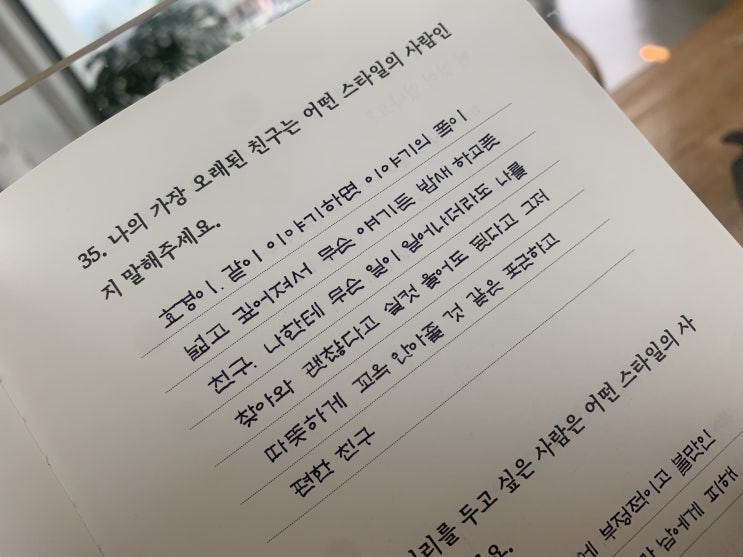 35. 나의 가장 오래된 친구는 어떤 스타일의 사람인
지 말해주세요.
효경이. 같이 이야기하면 이야기의 폭이
넓고 깊어져서 무슨 얘기든 밤새 하고픈
친구. 나한테 무슨 일이 일어나더라도 나를
찾아와 괜찮다고 실컷 울어도 된다고 그저
따뜻하게 꼬옥 안아줄 것 같은 포근하고
편한 친구
리를 두고 싶은 사람은 어떤 스타일의 사
요.
부정적이고 불만인
남에게 피해